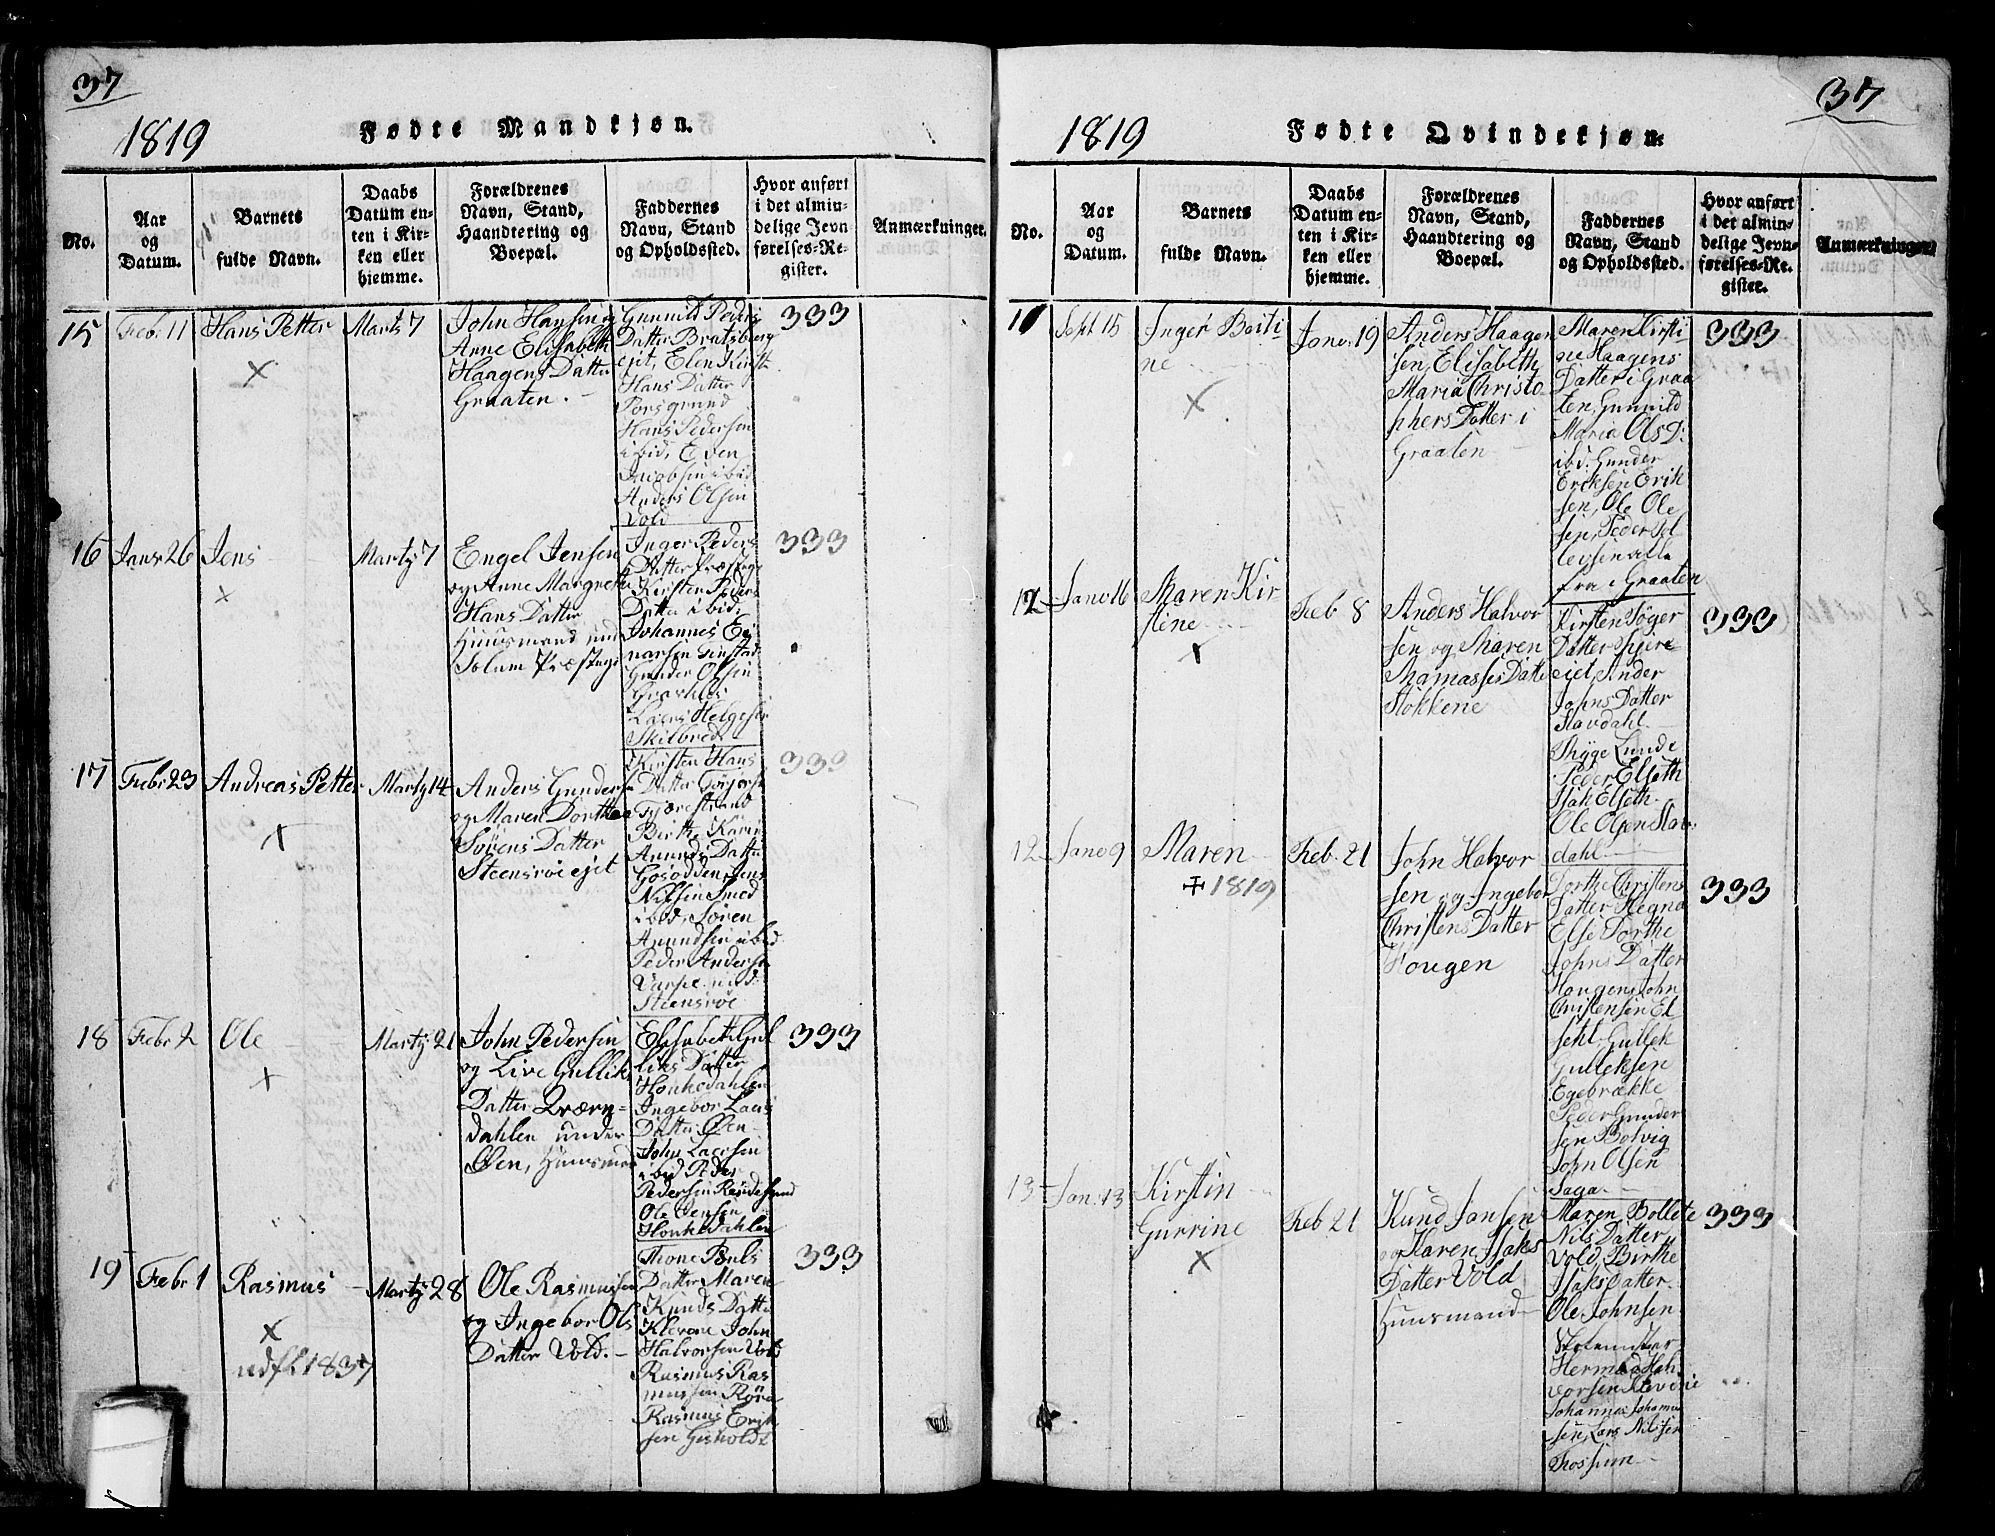 37
1819
Fødte Mandkjøn.
No.
Aar
og
Datum.
Barnets
fulde Navn.
Daabs
Datum en-
ten i Kir-
ken eller
hjemme.
Forældrenes
Navn, Stand,
Haandtering og
Boepæl.
Faddernes
Navn, Stand
og Opholdssted.
Hvor anført
i det almin-
delige Jevn
førelses-Re-
gister.
Anmærkninger.
15
Febr 11
Hans Petter
x
Marts 7
John Hansen og
Anne Elisabeth
Haagens Datter
Graaten.
Gunnild Peders
Datter Bratsberg
ejet, Elen Kirst
Hans Datter
Porsgrund
Hans Pedersen
ibid, Even
Jacobsen ibid
Anders Olsen
Vold
333
16
Janr 26
Jens
x
Martz 7
Engel Jensen
og Anne Margrethe
Hans Datter
Huusmand und
Solum Præsteg
Inger Peders
Datter Præsteg
Kirsten Peders
Datter ibid.
Johannes Ei
narsen
Gunder Olsen
Graahles
Laers Helgesen
Skilbred
333
17
Febr 23
Andreas Petter
x
Martz 14
Anders Gunders
og Maren Dorthea
Sørens Datter
Steensrøi ejet
Kirsten Hans
Datter
Fjærestrand
Birthe Karin
Anunds Datter
Jens
Nilsen Smed
ibid, Søren
Anundsen ibid
Peder Anderse
und
Steensrøe
333
18
Febr 2
Ole
x
Martz 21
John Pedersen
og Live Gulliks
Datter Qværn-
dahlen under
Øen, Huusmand
Elisabeth Gul
liks Datter
Honkedahlen
Ingebor Laers
Datter Øen
John Laersen
ibid Peder
Pedersen
Ole Jensen
Honkedahlen
333
19
Febr 1
Rasmus
x
udfl 1837
Martz 28
Ole Rasmussen
og Ingebor Ols
Datter Vold.
Thone Pouls
Datter Maren
Knuds Datter
Klevene John
Halvorsen Vold
Rasmus Ras
mussen Røra
Rasmus Erik
sen Gisholdt
333
37
1819
Fødte Qvindekjøn.
No.
Aar
og
Datum.
Barnets
fulde Navn.
Daabs
Datum en-
ten i Kir-
ken eller
hjemme.
Forældrenes
Navn, Stand,
Haandtering og
Boepæl.
Faddernes
Navn, Stand
og Opholdssted.
Hvor anført
i det almin-
delige Jevn-
førelses-Re-
gister.
Anmærkninger
Sept 15
Inger Berti
ne
x
Jano. 19
Anders Haagen
sen, Elisabeth
Maria Christo
phers Datter i
Graaten
Maren Kirsti
ne Haagens
Datter i Graa
ten, Gunnild
Maria Ols D:
ibd. Gunder
Eriksen Erik
sen, Ole Ole
sen, Peder Tol
lefsen alle
fra i Graaten
333
Jano 16
Maren Kir
stine
x
Feb 8
Anders Halvor
sen og Maren
Thamasses Datte
Stokkene
Kirsten
Datter
eiet,
Johns Datter
Slavdahl
Lunde
Peder Elseth
Isak Elseth
Ole Olsen Slav
dahl
333
12
Jano 9
Maren
+ 1819
Feb. 21
John Halvor
sen og Ingebor
Christens Datter
Hougen
Dorthe Christens
Datter Hegna
Else Dorthe
Johns Datter
Hougen, John
Christensen El
seht, Gullek
Gulleksen
Egebrække
Peder Gunder
sen Bolvig
John Olsen
Saga
333
13
Jan. 13
Kirstin
Gurrine
x
Feb 21
Knud Jansen
og Karen Isaks
Datter Vold
Huusmand
Maren Bollete
Nils Datter
Vold, Birthe
Isaks Datter
Ole Johnsen
Herman Hal
vorsen Klevene
Johannes Johannes
sen, Lars Nilsen
Fossum
333